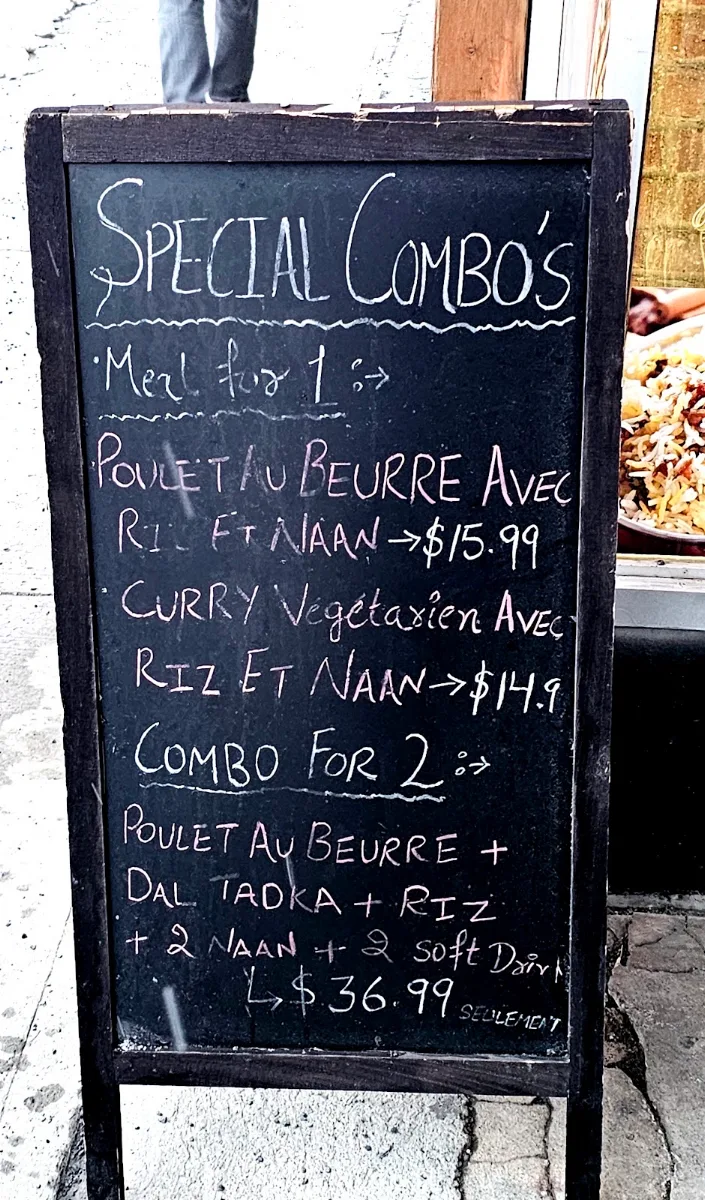 SPECIAL COMBO'S
Meal for 1 :→
POULET AU BEURRE AVEC
RIZ ET NAAN →$15.99
CURRY Végétarien AVEC
RIZ ET NAAN→$14.9
COMBO FOR 2 :→
POULET AU BEURRE +
DAL TADKA + RIZ
+ 2 NAAN + 2 soft Drink
↳ $ 36.99 SEULEMENT